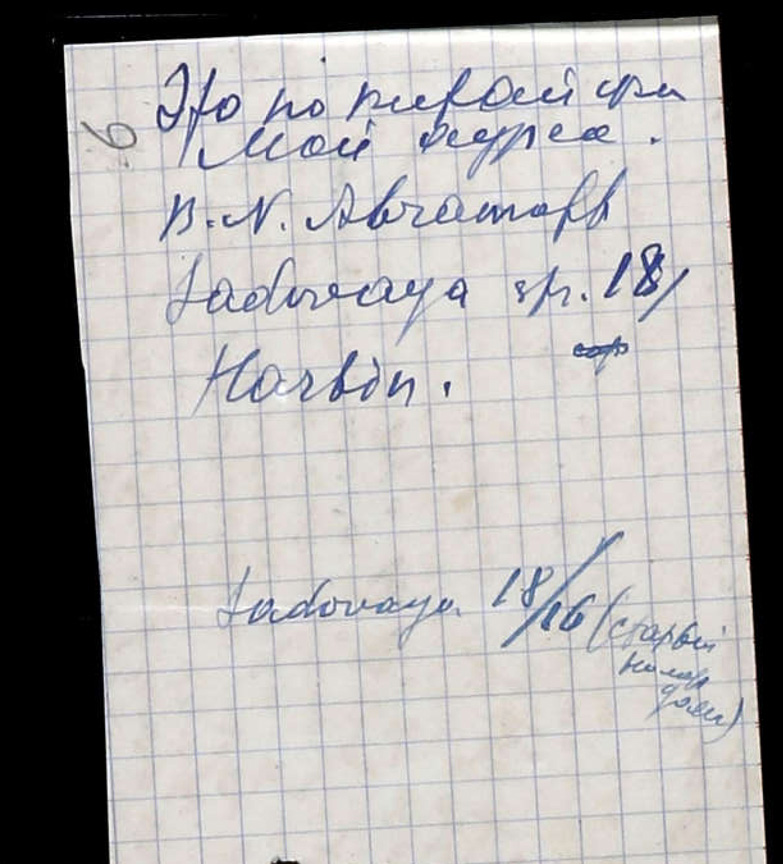 6
Это по
Мой адрес.
B. N. Abramoff
Sadovaya str. 18/
Harbin.
Sadovaya 18/16 (старый
номер
дома)